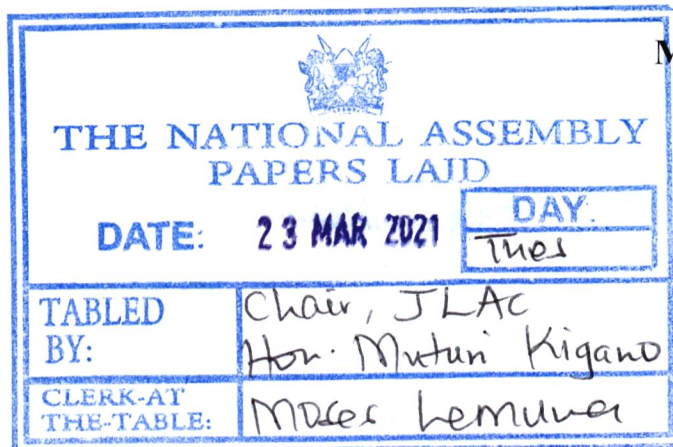 M
THE NATIONAL ASSEMBLY
PAPERS LAID
DATE: 23 MAR 2021
DAY.
Tues
TABLED BY:
Chair, JLAC
Hon. Muturi Kigano
CLERK-AT THE-TABLE:
Moses Lemuna